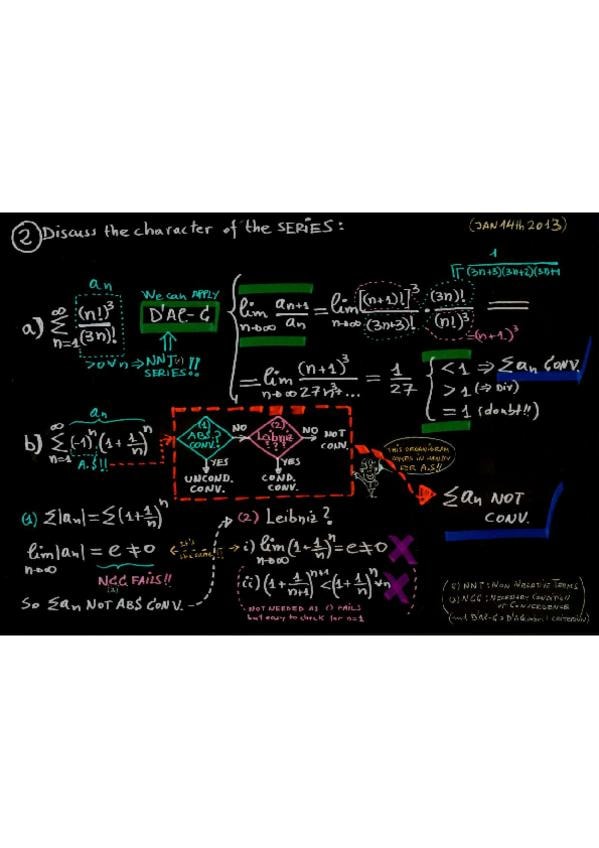 ② Discuss the character of the SERIES: (JAN 14th 2013)
a) ∑_{n=1}^{∞} (n!)³/(3n)!
a_n
> 0 ∀n ⇒ NNT(1) SERIES!!
We can APPLY
D'AL-G
lim_{n→∞} a_{n+1}/a_n = lim_{n→∞} [(n+1)!]³/(3n+3)! · (3n)!/(n!)³ =
1
(3n+3)(3n+2)(3n+1
=(n+1)³
= lim_{n→∞} (n+1)³/27n³+... = 1/27
< 1 ⇒ ∑a_n CONV.
> 1 (⇒ Div)
= 1 (doubt!!)
b) ∑_{n=1}^{∞} (-1)^n (1+1/n)^n
a_n
A.S!!
(1) ABS? CONV.
NO
(2) Leibniz ???
NO
NOT CONV.
YES
UNCOND. CONV.
YES
COND. CONV.
THIS ORGANIGRAM
COMES IN HANDY
FOR A.S!!
∑a_n NOT
CONV.
(1) ∑|a_n| = ∑(1+1/n)^n
lim_{n→∞} |a_n| = e ≠ 0
NCC FAILS!!
(2)
So ∑a_n NOT ABS CONV.
(2) Leibniz?
i) lim_{n→∞} (1+1/n)^n = e ≠ 0 X
ii) (1+1/n+1)^{n+1} < (1+1/n)^n ∀n X
NOT NEEDED AS i) FAILS
but easy to check for n=1
(1) NNT: NON NEGATIVE TERMS
(2) NCC: NECESSARY CONDITION
OF CONVERGENCE